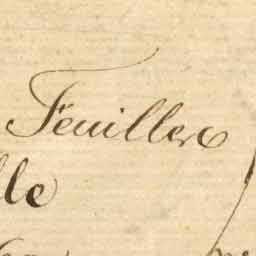 Feuillere
lle